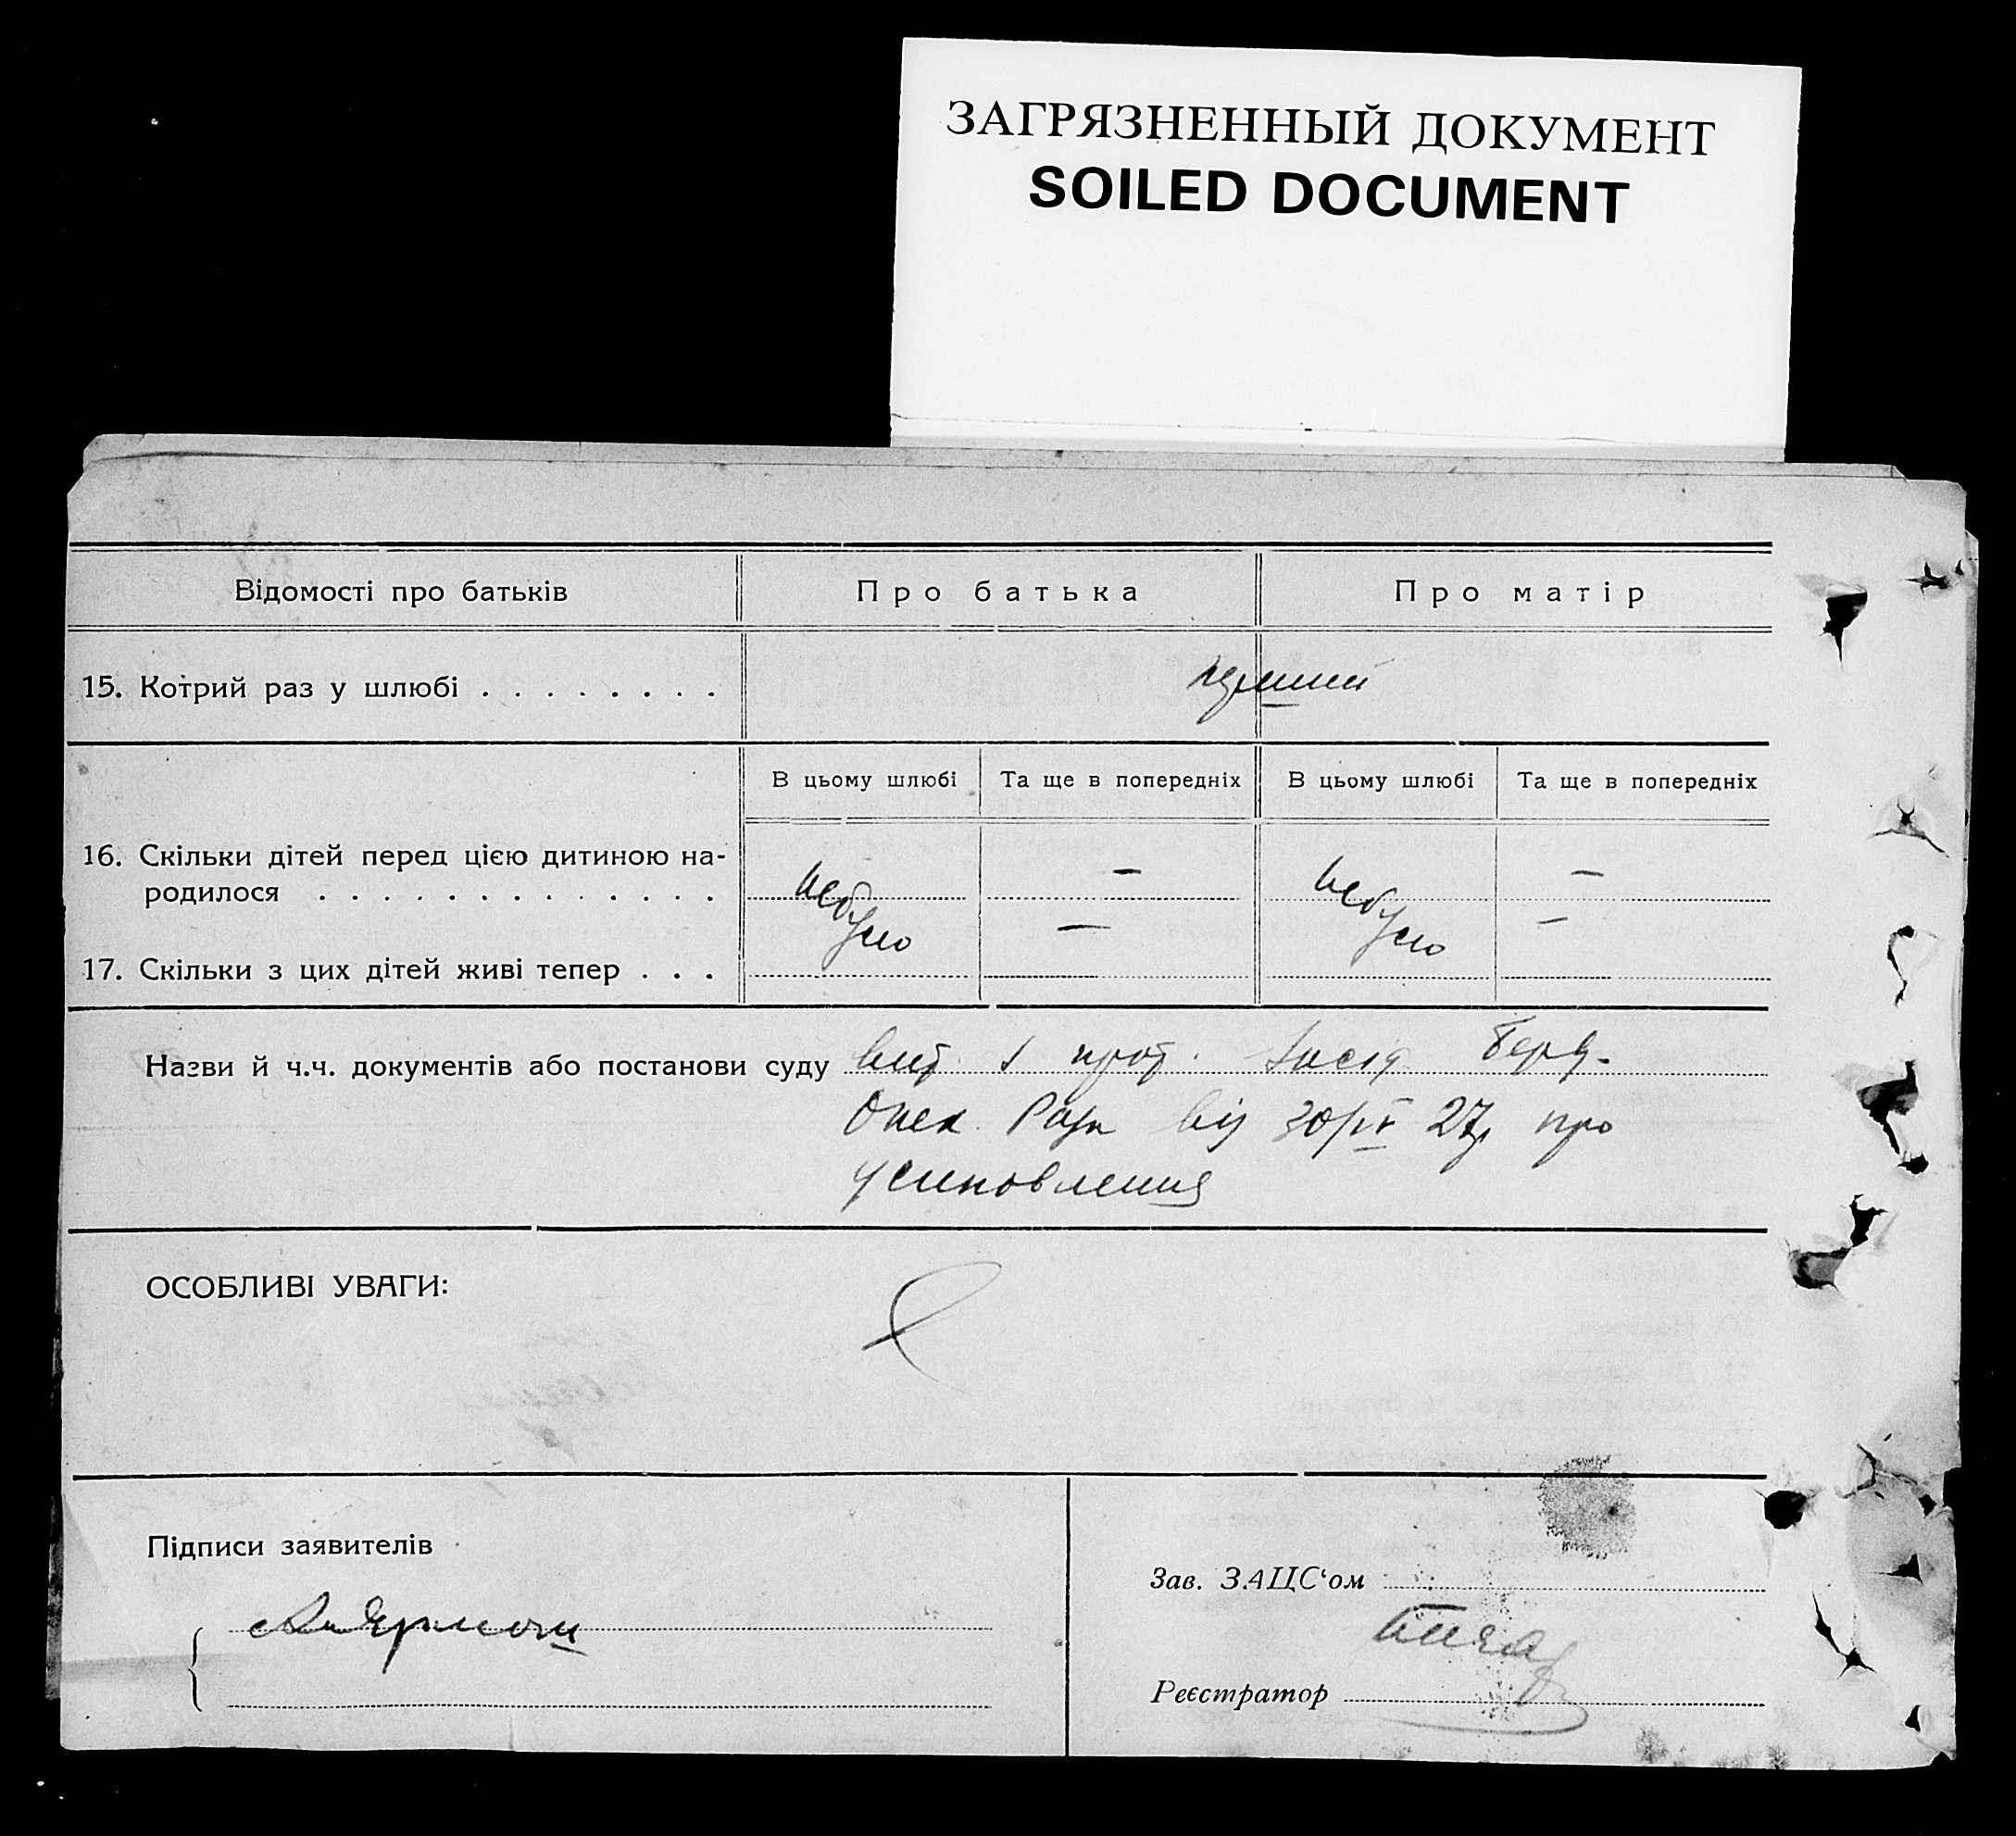 ЗАГРЯЗНЕННЫЙ ДОКУМЕНТ
SOILED DOCUMENT
Відомості про батьків Про батька Про матір
15. Котрий раз у шлюбі . . . . . . . .
В цьому шлюбі Та ще в попередніх В цьому шлюбі Та ще в попередніх
16. Скільки дітей перед цією дитиною на-
родилося . . . . . . . . . . . . . — —
небуло — небуло —
17. Скільки з цих дітей живі тепер . . .
Назви й ч.ч. документів або постанови суду вит. з прот. засід.
Опек. Ради від 30/IV 27р про
усиновлення
ОСОБЛИВІ УВАГИ:
Підписи заявителів
Зав. ЗАЦС‘ом
Ярмош
Реєстратор